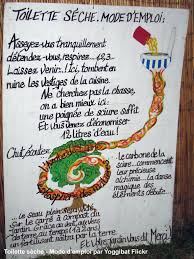 TOILETTE SÈCHE. MODE D'EMPLOI:
Asseyez-vous tranquillement
détendez-vous, respirez... 1,2,3...
Laissez Venir..! Ici, tombent en
ruine les vestiges de la cuisine.
Ne cherchez pas la chasse,
on a bien mieux ici:
une poignée de sciure suffit
Et vous venez d'économiser
12 litres d'eau!
Chut, écoutez,
le carbone de la
soire...
commencent
leur précieuse
alchimie... la danse
magique des
éléments débute...
... Le seau plein
sur le carré à compost du
jardin.
un fertilisant naturel par la terre
Et Votre jardin vous dit Merci!
Toilette sèche - Mode d'emploi par Yoggibat Flickr